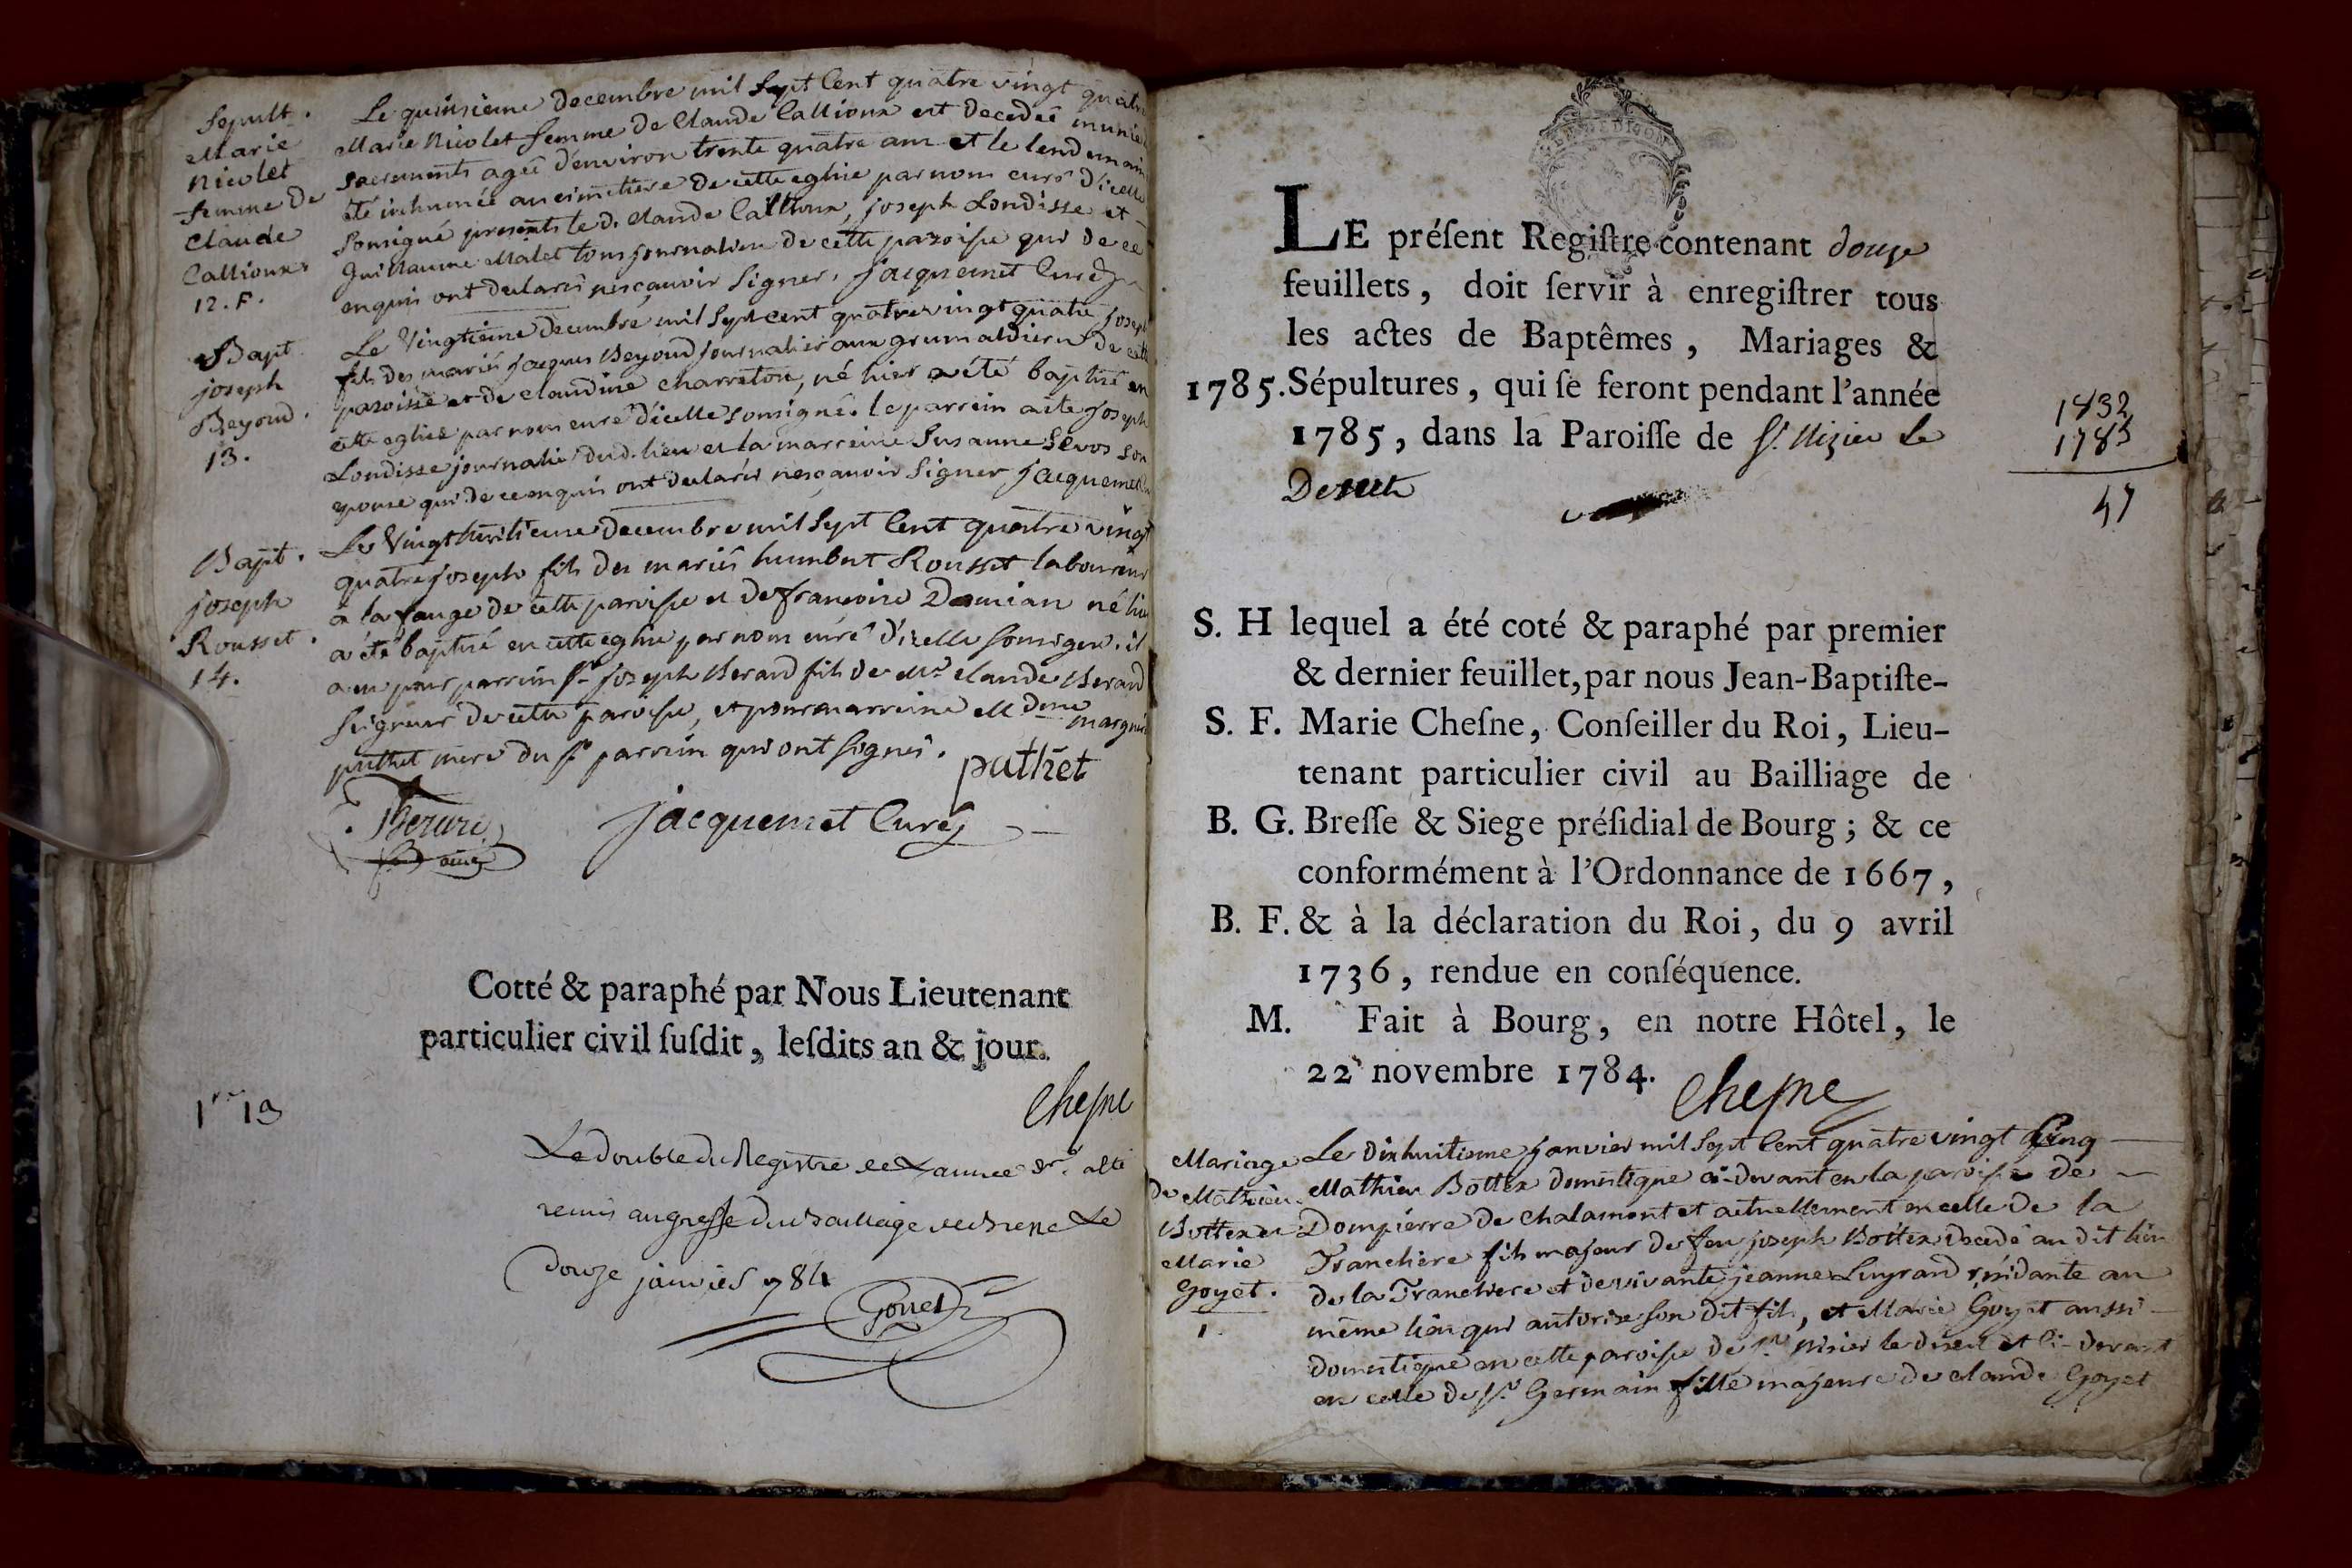 Sepult.
Marie
Nicolet
femme de
Claude
Callioux
12. F.
Le quinsieme decembre mil sept Cent quatre vingt quatre
Marie Nicolet femme de Claude Callioux est decedée munie
sacrements agée d'environ trente quatre ans et le lendemain
été inhumée au cimetiere de cette eglise par nous curé d'icelle
Sousigné presents le d. Claude Callioux, joseph Londisse et
Guillaume Malet tous journaliers de cette paroisse qui de ce
enquis ont declarés nesçavoir signer. jacquemet Curé
Bapt
joseph
Beyoud.
13.
Le Vingtieme decembre mil Sept cent quatre vingt quatre joseph
fils des mariés jacques Beyoud journalier aux de cette
paroisse et de claudine charreton, né hier a été baptisé en
cette eglise par nous curé d'icelle sousigné. le parrein a été joseph
Londisse journalié dud. lieu et la marreine Susanne Sevos son
epouse qui de ce enquis ont declarés nesçavoir signer jacquemet
Bapt.
joseph
Rousset.
14.
Le Vingt huitieme decembre mil Sept Cent quatre vingt
quatre joseph fils des mariés humbert Rousset laboureur
a la fange de cette paroisse et de francoise Damian né hier
a été baptisé en cette eglise par nous curé d'icelle sousigné. il
a eu pour parrein Sr joseph Berard fils de Mr claude Berard
seigneur de cette paroisse, et pour marreine Mdme
puthet mere du Sr parrein qui ont signés.
puthet
Berard
jacquemet Curé
Cotté & paraphé par Nous Lieutenant
particulier civil ſuſdit, leſdits an & jour.
Cheſne
19
Le double du Registre de L'annee dre a été
remis au greffe du Bailliage de Bresse Le
Douze janvier 784
LE préſent Regiſtre contenant douze
feuillets, doit ſervir à enregiſtrer tous
les actes de Baptêmes, Mariages &
1785. Sépultures, qui ſe feront pendant l'année
1785, dans la Paroiſſe de St. Nizier Le
Desert
1832
1785
47
S. H lequel a été coté & paraphé par premier
& dernier feuillet, par nous Jean-Baptiſte-
S. F. Marie Cheſne, Conſeiller du Roi, Lieu-
tenant particulier civil au Bailliage de
B. G. Breſſe & Siege préſidial de Bourg; & ce
conformément à l'Ordonnance de 1667,
B. F. & à la déclaration du Roi, du 9 avril
1736, rendue en conſéquence.
M. Fait à Bourg, en notre Hôtel, le
22 novembre 1784.
Cheſne
Mariage
de Mathieu
Bottex et
Marie
Goyet.
1.
Le Dixhuitieme janvier mil Sept Cent quatre vingt Cinq
Mathieu Bottex domestique ci-devant en la paroisse de
Dompierre de Chalamont et actuellement en celle de la
Tranchere fils majeur de feu joseph Bottex decedé au dit lieu
de la Tranchere et de vivante jeanne Lugrand résidante au
même lieu qui autorise son dit fils, et Marie Goyet aussi
domestique en cette paroisse de St. Nisier le desert et ci-devant
en celle de St. Germain fille majeure de claude Goyet